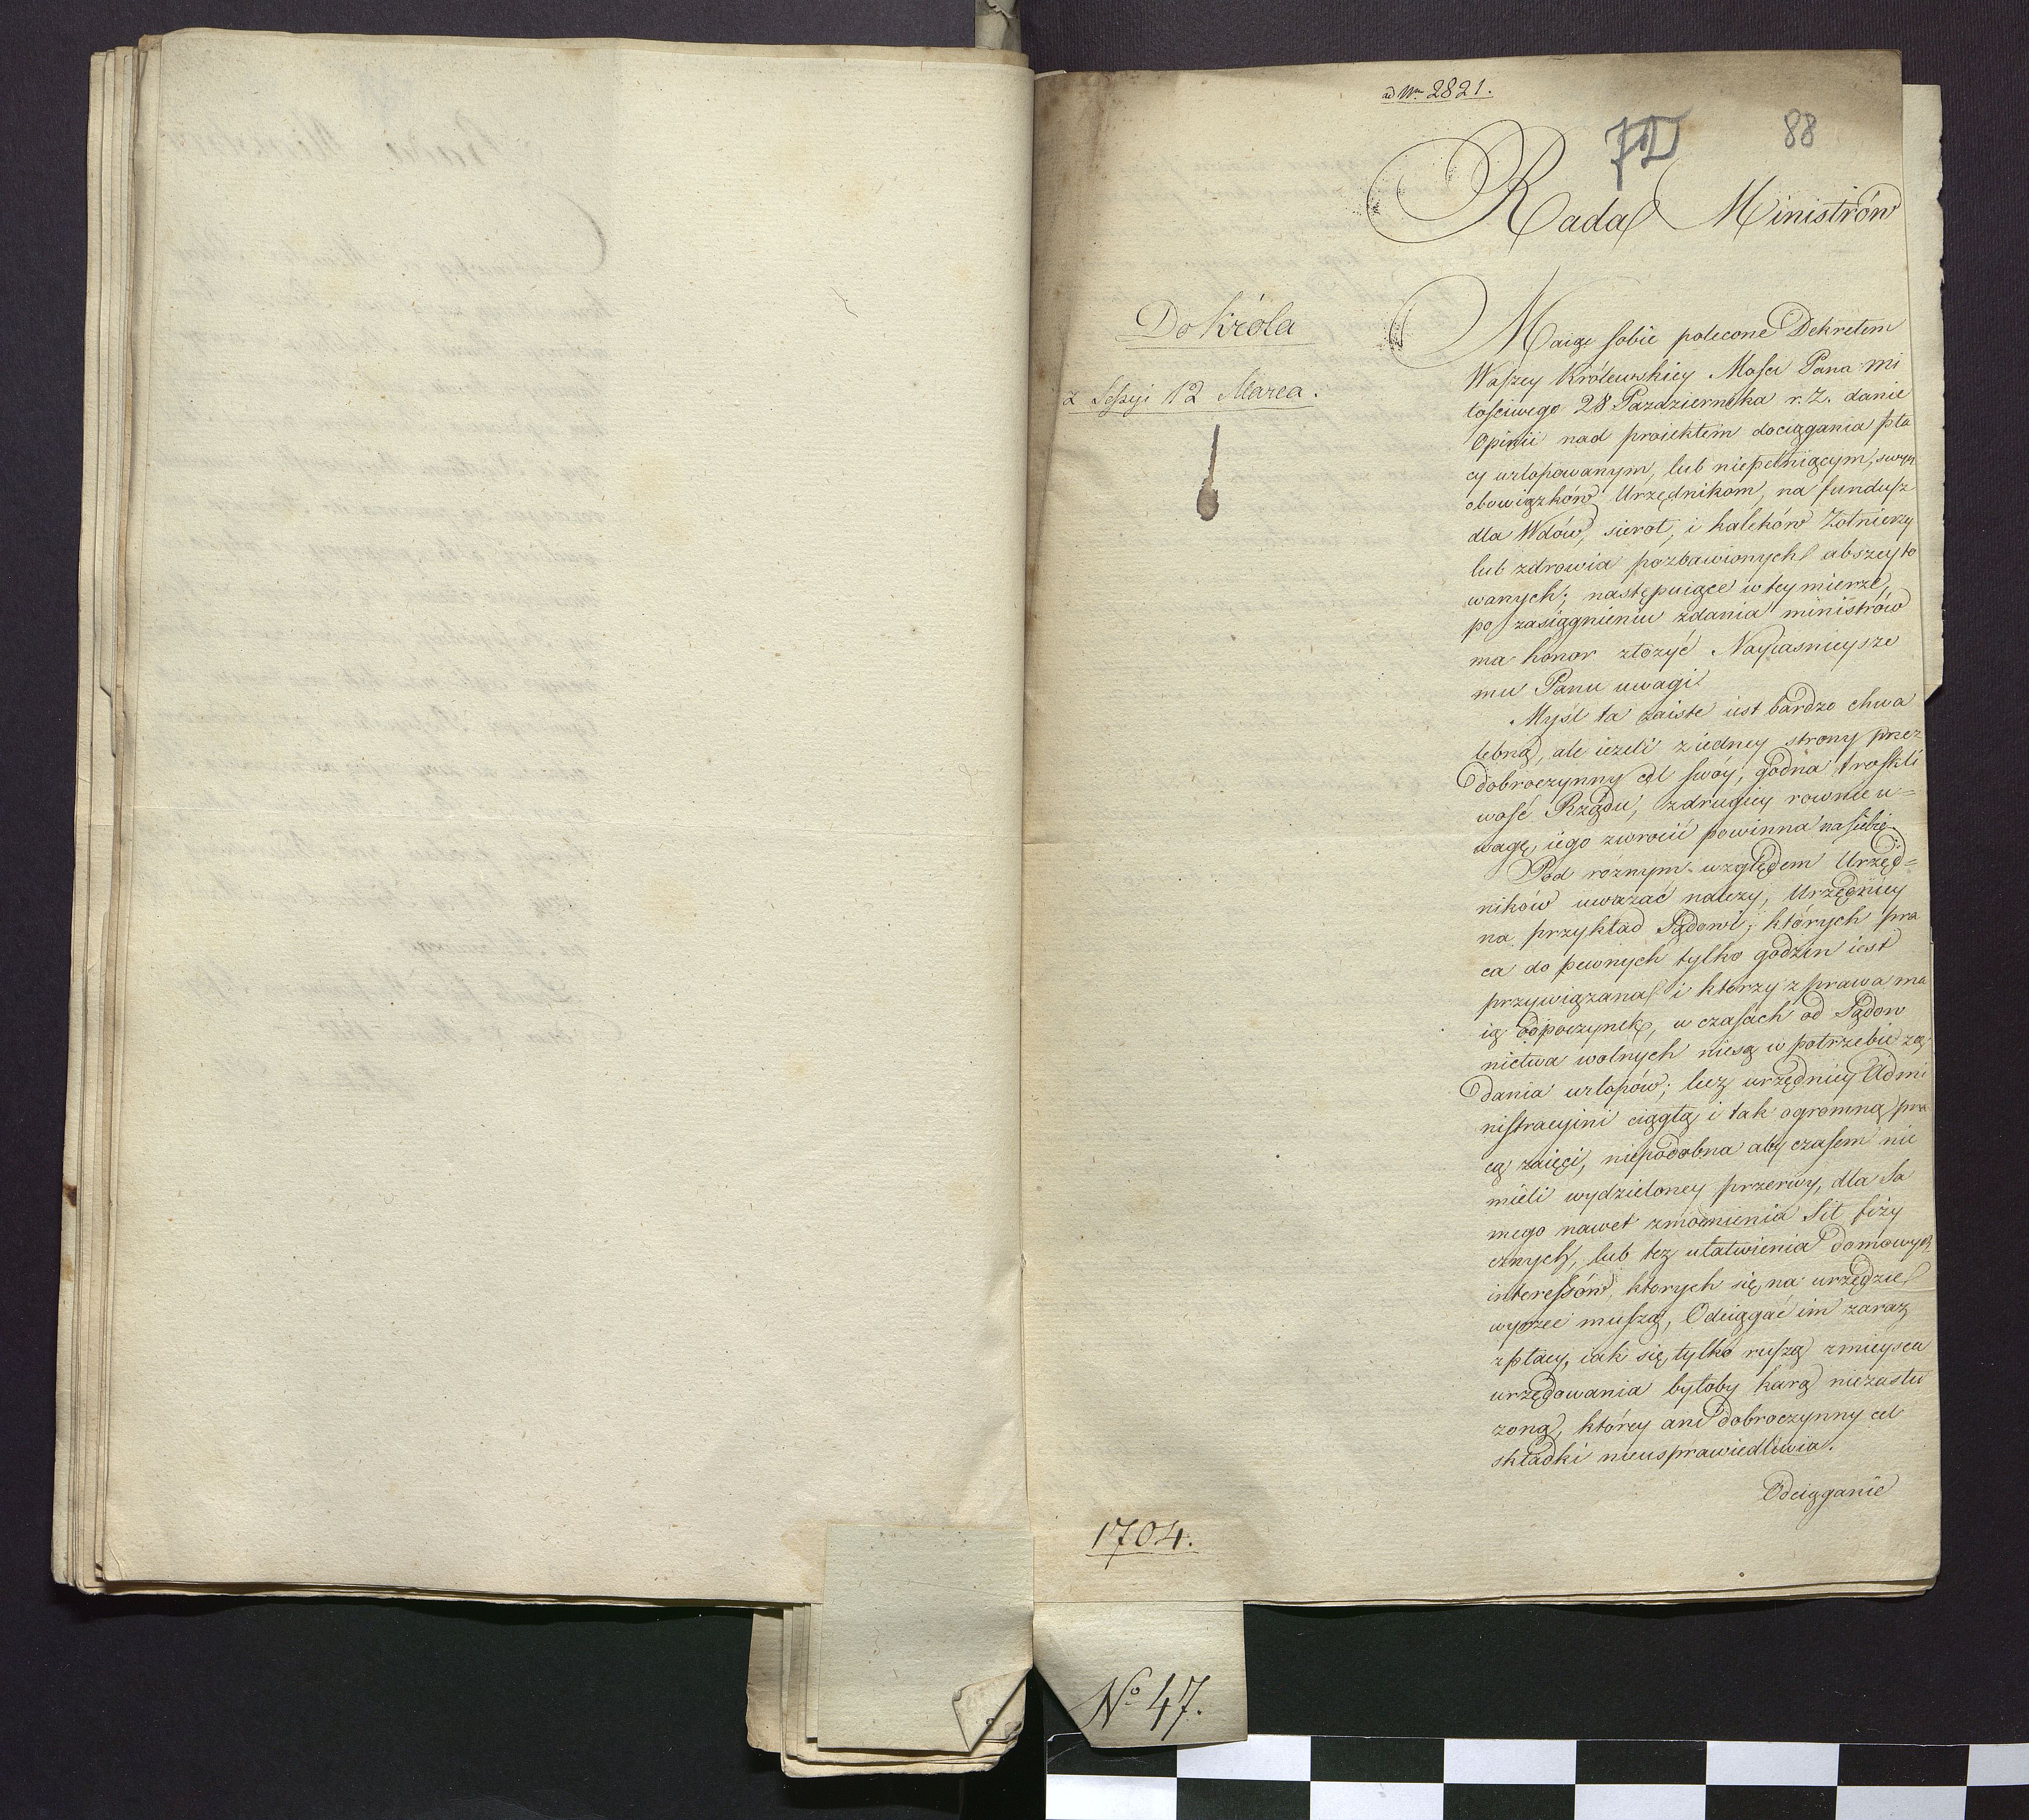 ad Nru 2821.
88
Rada Ministrów
Do Króla
z Sessyi 12 Marca.
Maiąc sobie polecone Dekretem
Waszey Królewskiey Mości Pana Mi
łościwego 28 Pazdziernika r. z. danie
Opinii nad proiektem dociągania pła
cy urlopowanym, lub niepełniącym, swych
obowiązków Urzędnikom, na fundusz
dla Wdów, sierot, i kaleków Żołnierzy
lub zdrowia pozbawionych abszeyto
wanych; następuiące w tey mierze,
po zasiągnieniu zdania ministrów
ma honor złożyć Nayiasnieysze
mu Panu uwagi.
Myśl ta zaiste iest bardzo chwa
lebną, ale ieżeli z iedney strony przez
dobroczynny cel swóy, godna troskli
wość Rządu, z drugiey rownie u=
wagę, iego zwrocić powinna na siebie.
Pod róznym względem Urzęd=
ników uważać należy, Urzędnicy
na przykład Sądowi, których pra
ca do pewnych tylko godzin iest
przywiązana i ktorzy z prawa ma
ią odpoczynek, w czasach od Sądow
nictwa wolnych niesą w potrzebie żą
dania urlopów; lecz urzędnicy Admi
nistracyini ciągłą i tak ogromną pra
cą zaięci, niepodobna aby czasem nie
mieli wydzieloney przerwy, dla sa
mego nawet zmocnienia sił fizy
cznych, lub tez ułatwienia domowych
interessów, ktorych się na urzędzie
wyrzec muszą, Odciągać im zaraz
z płacy, iak się tylko ruszą z mieysca
urzędowania byłoby karą niezasłu
żoną, którey ani dobroczynny cel
składki nieusprawiedliwia.
Odciąganie
1704.
No 47.